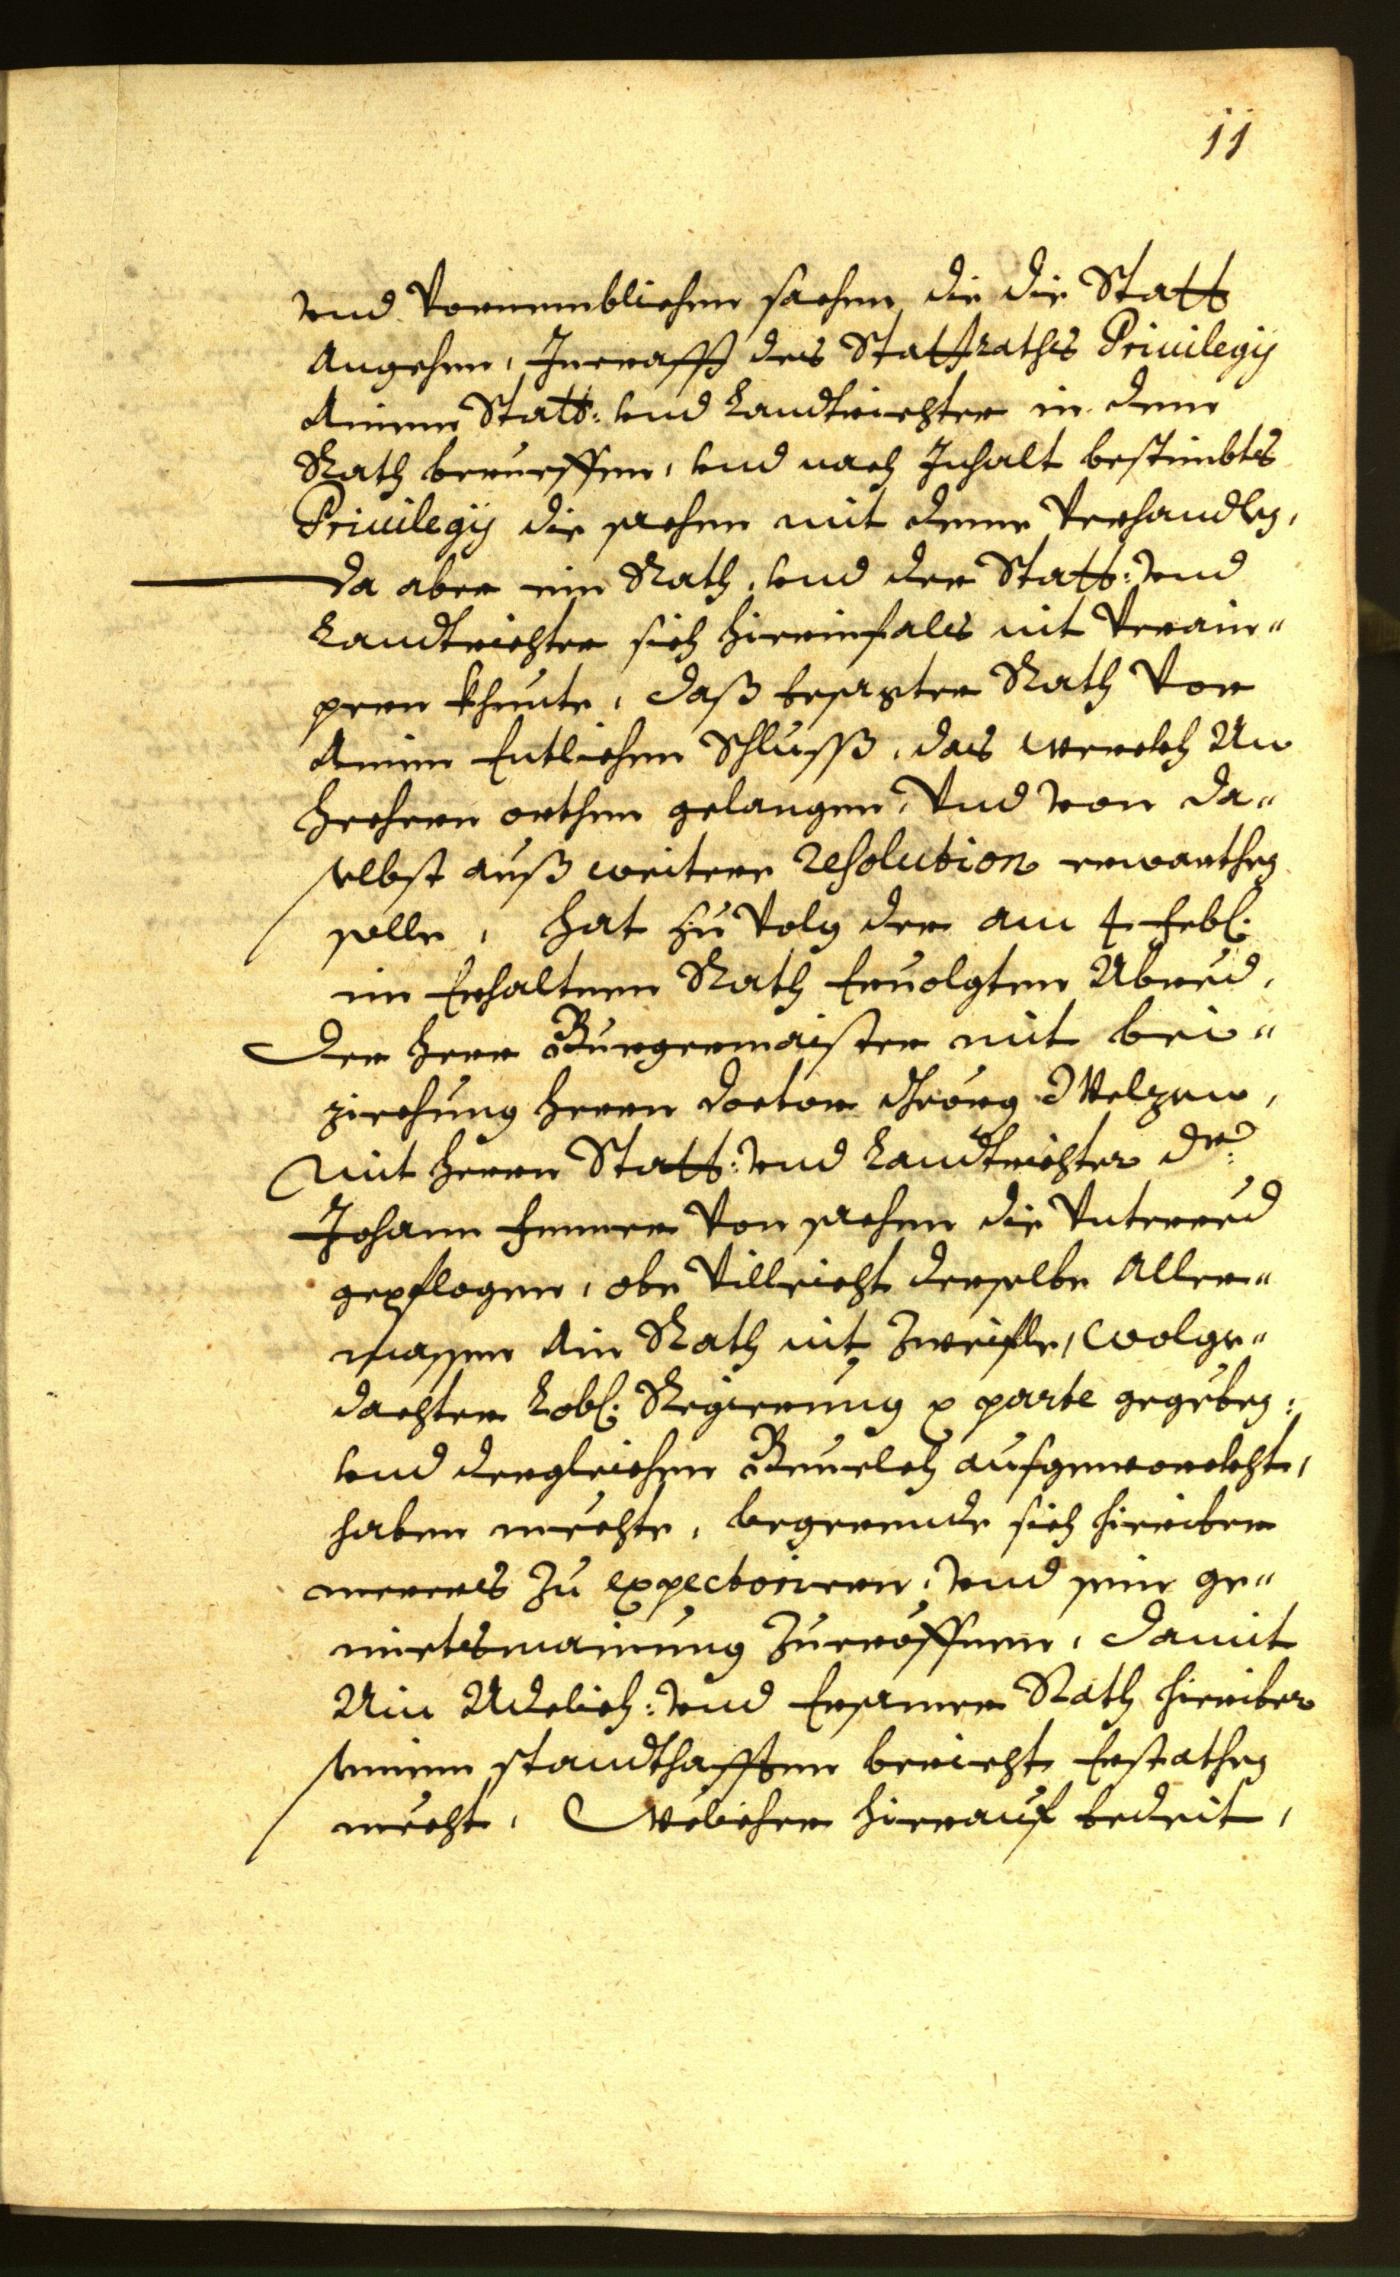 11
vnd Vornemblichen sachen die die Statt
Angehen, Incrafft des Stattraths Priuilegij
Ainen Statt: vnd Landtrichter in den
Rath berueffen, vnd nach Inhalt bestimbts
Priuilegij die sachen mit deme Verhandlen,
da aber ein Rath, vnd der Statt: vnd
Landtrichter sich hierinfals nit Verain"
gern khunte, daß besagter Rath Vor
Ainem Entlichen Schlusß, das werckh An
hechern orthen gelangen, Vnd von da"
selbst auß weitere resolution erwarthen
solle, hat zu Volg der am 4. Feb:
in Gehaltnen Rath Eruolgten Abred,
Der Herr Burgermaister mit bei"
ziechung Herrn Doctor Geörg
Mit Herrn Statt: vnd Landtrichter Dr:
Johann Von sachen die Vnterred
gepflogen, obe Villeicht derselbe Aller"
massen Ain Rath nit Zweifle, wolge"
dachter Lobl: Regierung ex parte gegeben:
vnd dergleichen Beuelch aufgeworckht,
haben mechte, begerende sich hieriber
merers zu expectoriren, vnd sein ge"
miets mainung Zu eröffnen, damit
Ain Adelich: vnd Ersamer Rath hieriber
seinen standthafften bericht Erstathen
mecht, Welicher hierauf bedeit,